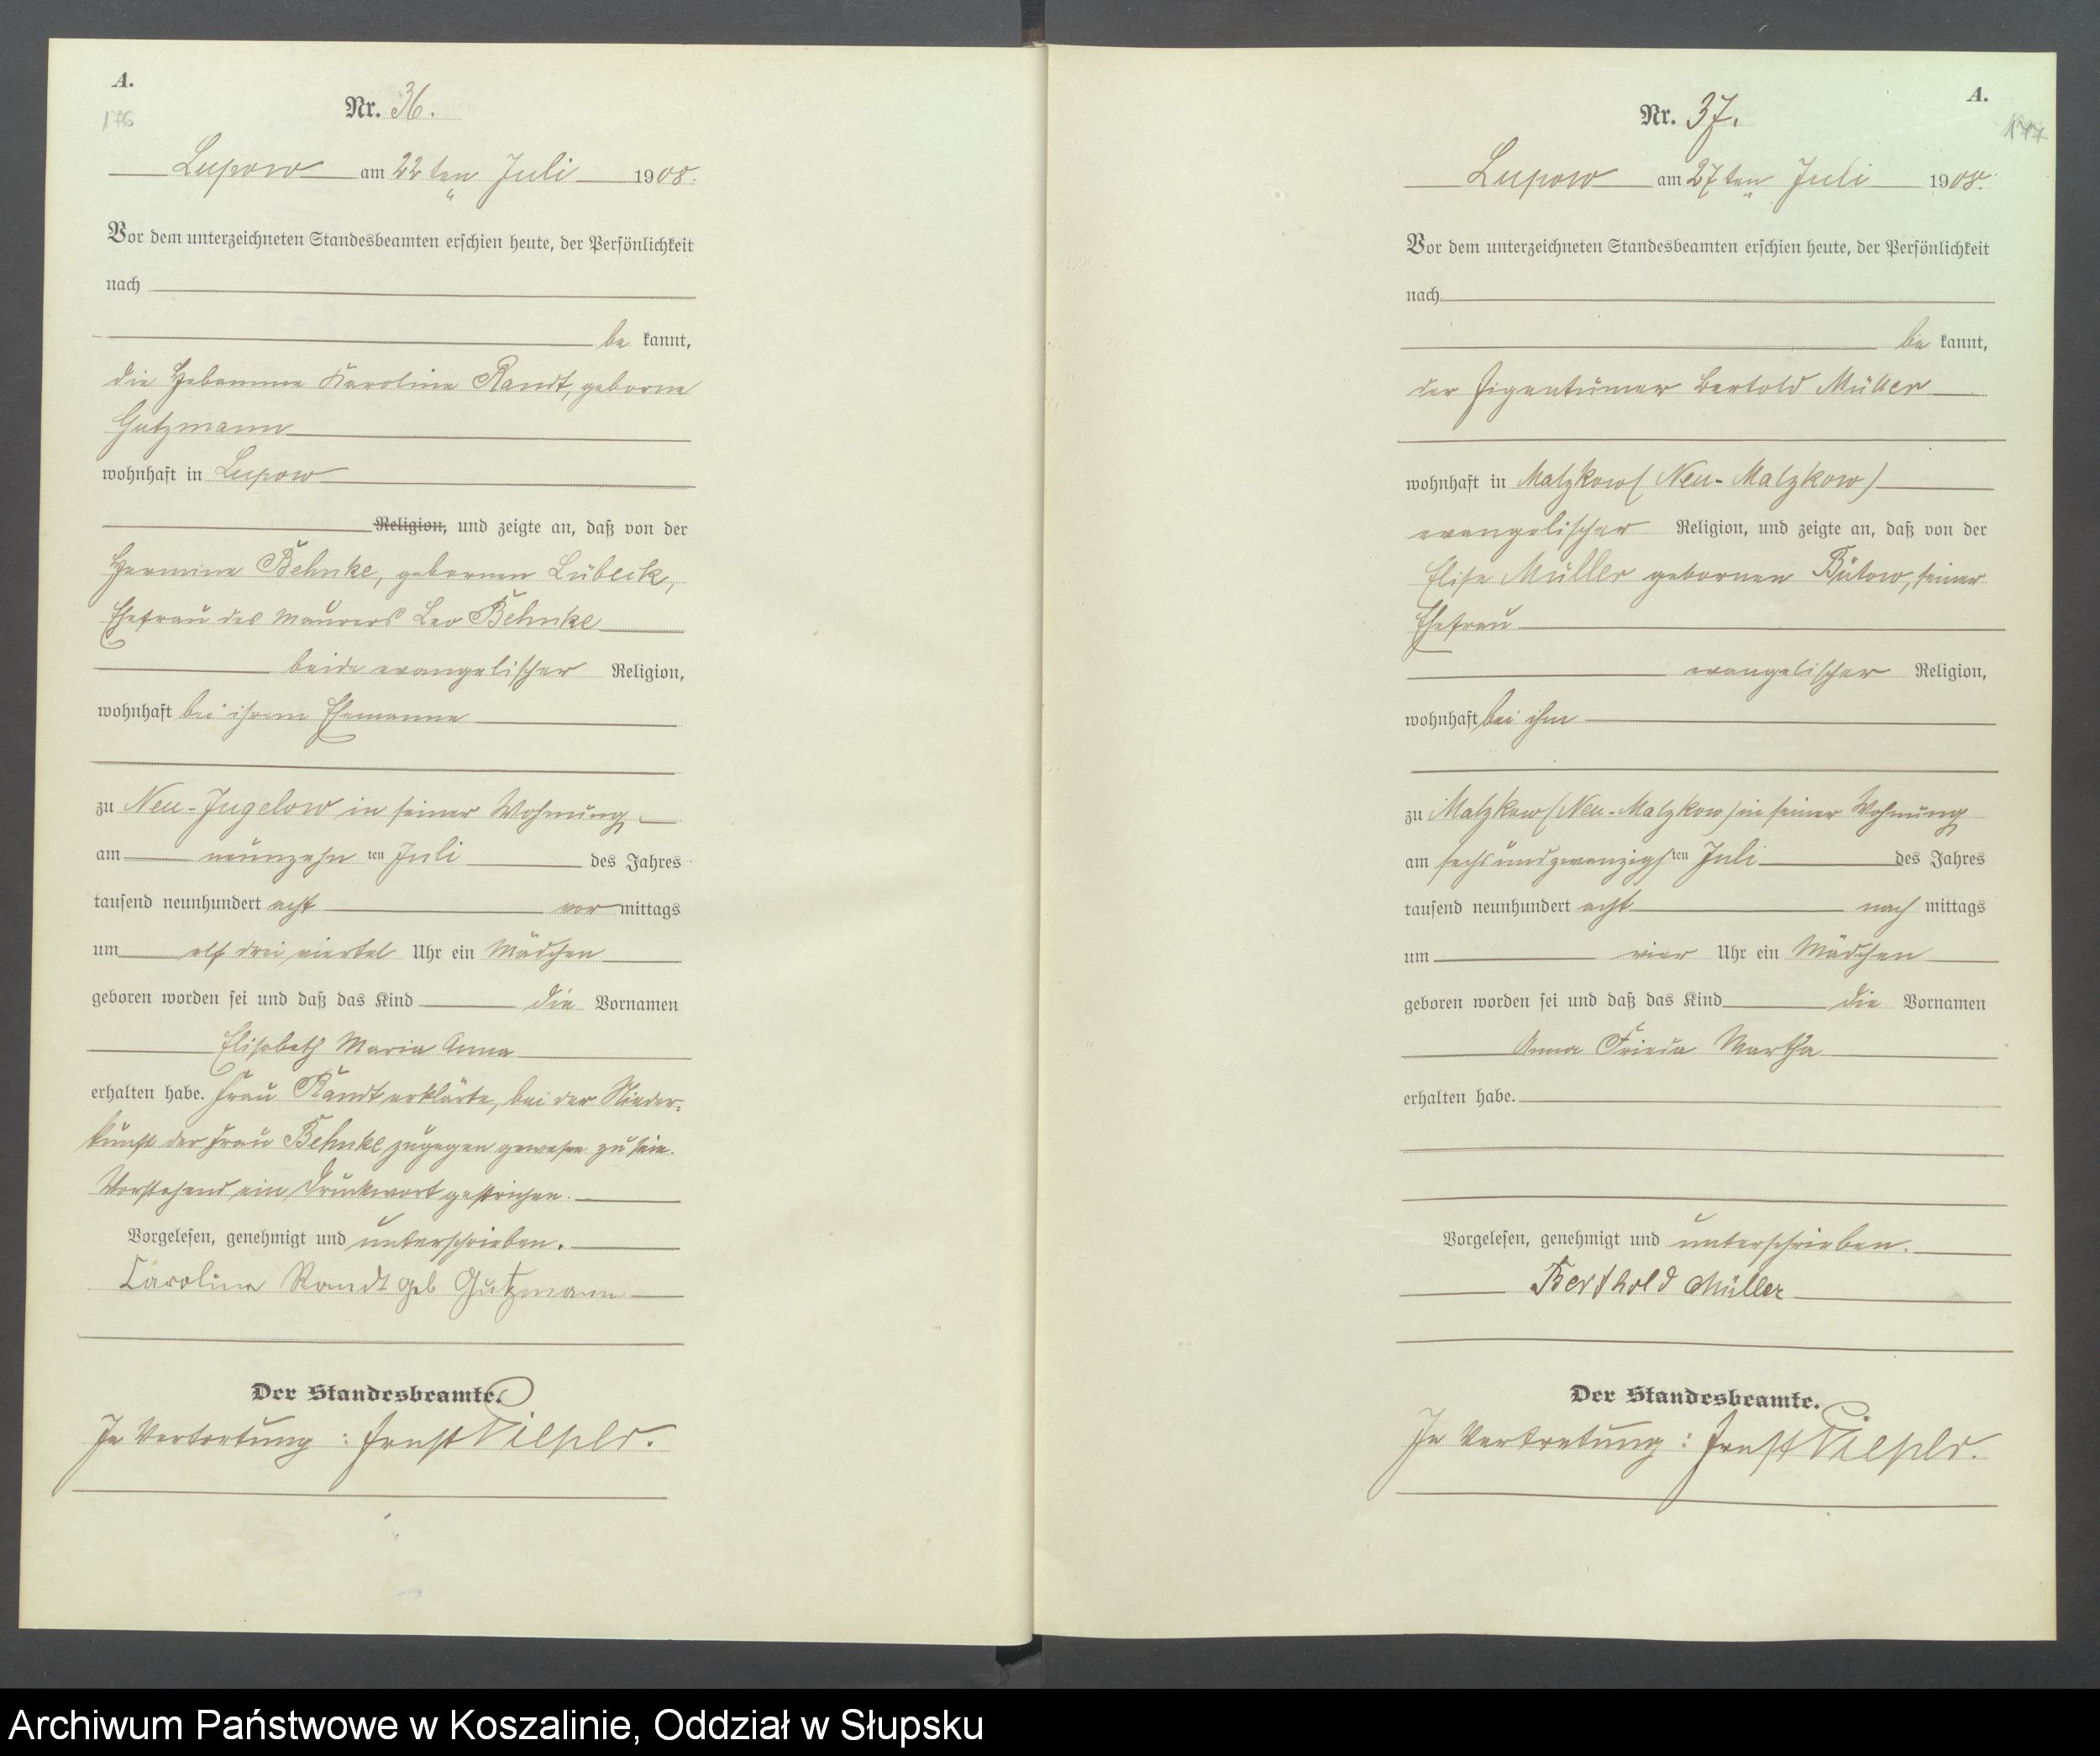 A.
176
Nr. 36.
Lupow am 22ten Juli 1908.
Vor dem unterzeichneten Standesbeamten erschien heute, der Persönlichkeit
nach
be kannt,
die Hebamme Karoline Randt, geborne
Gutzmann
wohnhaft in Lupow
Religion, und zeigte an, daß von der
Hermine Behnke, gebornen Lübeck,
Ehefrau des Maurers Leo Behnke
beide evangelischer Religion,
wohnhaft bei ihrem Ehemanne
zu Neu-Jugelow in seiner Wohnung
am neunzehn ten Juli des Jahres
tausend neunhundert acht vor mittags
um elf drei viertel Uhr ein Mädchen
geboren worden sei und daß das Kind die Vornamen
Elisabeth Maria Anna
erhalten habe. Frau Randt erklärte, bei der Nieder-
kunft der Frau Behnke zugegen gewesen zu sein.
Vorstehend ein Druckwort gestrichen.
Vorgelesen, genehmigt und unterschrieben.
Carolina Randt geb Gutzmann
Der Standesbeamte.
In Vertretung: Ernst
A.
177
Nr. 37.
Lupow am 27ten Juli 1908.
Vor dem unterzeichneten Standesbeamten erschien heute, der Persönlichkeit
nach
be kannt,
der Eigentümer Bertold Müller
wohnhaft in Malzkow (Neu-Malzkow)
evangelischer Religion, und zeigte an, daß von der
Elise Müller gebornen Bütow, seiner
Ehefrau
evangelischer Religion,
wohnhaft bei ihm
zu Malzkow (Neu-Malzkow) in seiner Wohnung
am sechsundzwanzigsten Juli des Jahres
tausend neunhundert acht nach mittags
um vier Uhr ein Mädchen
geboren worden sei und daß das Kind die Vornamen
Anna Frieda Martha
erhalten habe.
Vorgelesen, genehmigt und unterschrieben.
Berthold Müller
Der Standesbeamte.
In Vertretung: Ernst
Archiwum Państwowe w Koszalinie, Oddział w Słupsku